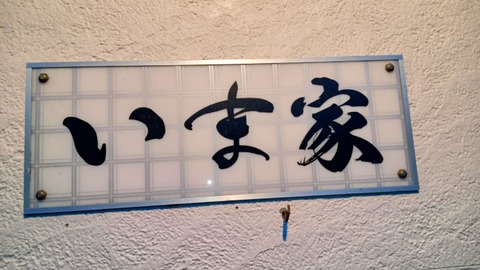 いま家